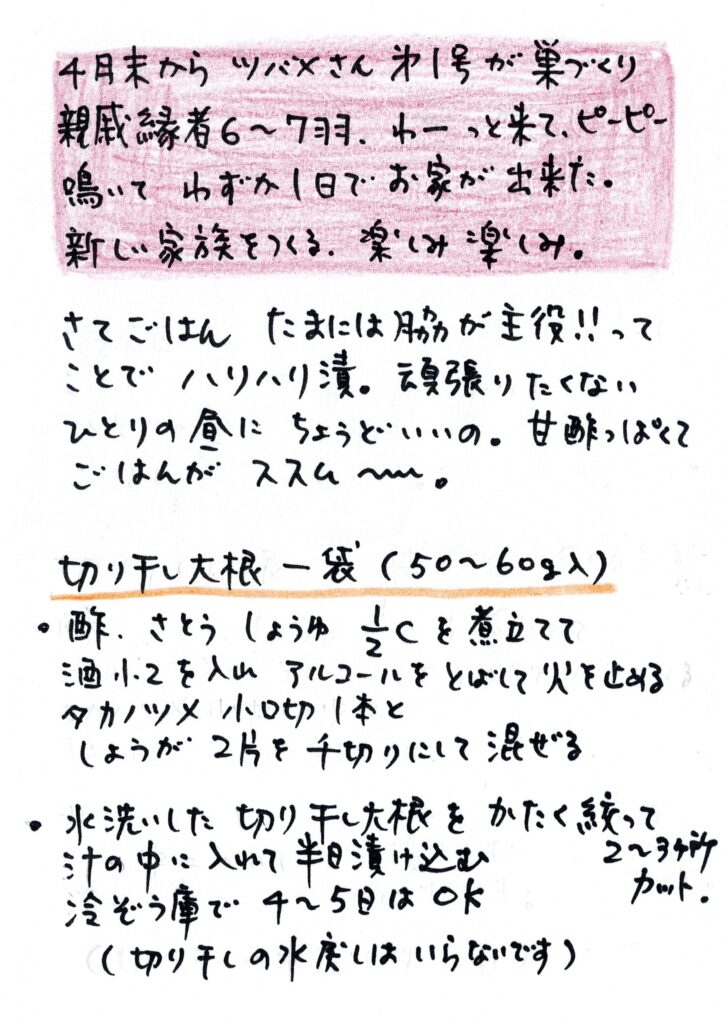 4月末から ツバメさん 第1号が巣づくり
親戚縁者6〜7羽、わーっと来て、ピーピー
鳴いて わずか1日で お家が 出来た。
新しい家族をつくる、楽しみ 楽しみ。
さてごはん たまには脇が主役!!って
ことで ハリハリ漬。頑張りたくない
ひとりの昼に ちょうどいいの。甘酢っぱくて
ごはんが ススム〜〜。
切り干し大根 一袋 (50〜60g入)
・酢、さとう しょうゆ 1/2 C を 煮立てて
酒小2を入れ アルコールをとばして火を止める
タカノツメ 小口切 1本と
しょうが 2片を 千切りにして 混ぜる
・水洗いした 切り干し大根を かたく絞って
2〜3ヶ所
カット。
汁の中に 入れて 半日漬け込む
冷ぞう庫で 4〜5日は OK
(切り干しの水戻しは いらないです)